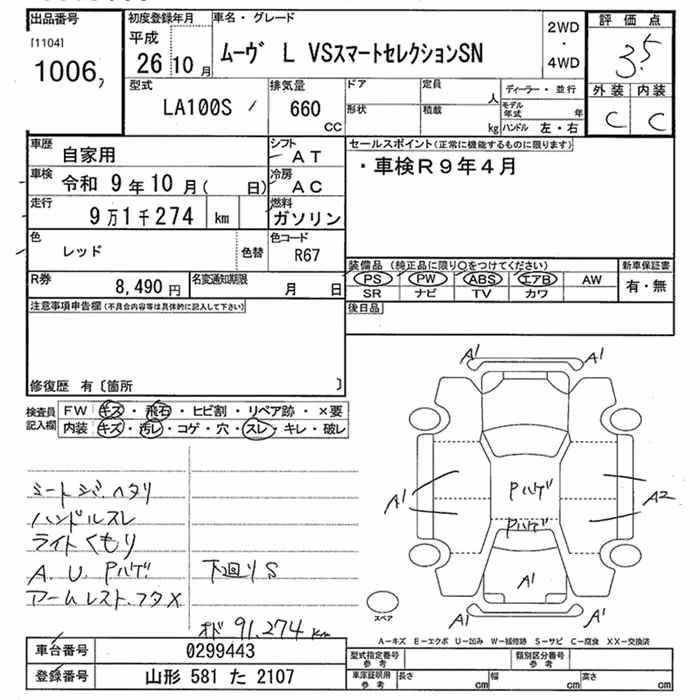 出品番号 初度登録年月 車名・グレード 2WD・4WD 評価点
[1104] 平成
1006, 26 10 月 ムーヴ L VSスマートセレクションSN 3.5
型式 排気量 ドア 定員 人 ディーラー・並行 外装 内装
LA100S 660 CC 形状 積載 kg モデル年式 年 ハンドル 左・右 C C
車歴 自家用 シフト AT セールスポイント(正常に機能するものに限ります)
車検 令和 9年10月( 日) 冷房 AC ・車検R9年4月
走行 9万1千274 km 燃料 ガソリン
色 レッド 色替 色コード R67
装備品(純正品に限り○をつけてください) 新車保証書
R券 8,490円 名変通知期限 月 日 PS PW ABS エアB AW 有・無
SR ナビ TV カワ
注意事項申告欄(不具合内容等は具体的に記入して下さい) 後日品
修復歴 有〔箇所 〕
検査員記入欄 FW キズ・飛石・ヒビ割・リペア跡・×要
内装 キズ・汚レ・コゲ・穴・スレ・キレ・破レ
A1 A1
A1 Pハゲ A2
Pハゲ
A1
A1 A1
スペア
シートジバヘタリ
ハンドルスレ
ライトくもり
A.U.Pハゲ 下回りS
アームレスト.フタX
オド 91.274 km
A-キズ E-エクボ U-凹み W-補修跡 S-サビ C-腐食 XX-交換済
車台番号 0299443 型式指定番号 参考 類別区分番号 参考
登録番号 山形 581 た 2107 車庫証明用 参考 長さ cm 幅 cm 高さ cm